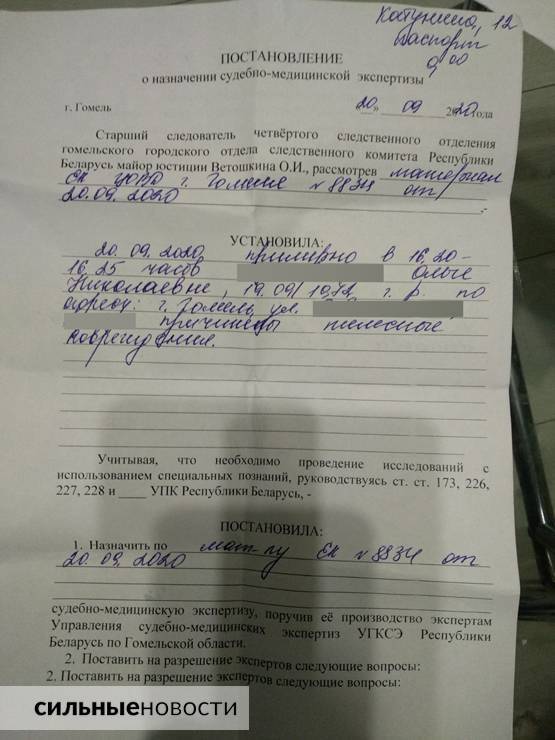 Катунина, 12
паспорт
9.00
ПОСТАНОВЛЕНИЕ
о назначении судебно-медицинской экспертизы
г. Гомель 20 09 2020 года
Старший следователь четвёртого следственного отделения
гомельского городского отдела следственного комитета Республики
Беларусь майор юстиции Ветошкина О.И., рассмотрев материал
ЕК г. Гомеля № 8834 от
20.09.2020
УСТАНОВИЛА:
20.09.2020 примерно в 16.20-
16.25 часов Ольге
Николаевне, 19.09.1972 г.р. по
адресу: г. Гомель, ул.
причинены телесные
повреждения.
Учитывая, что необходимо проведение исследований с
использованием специальных познаний, руководствуясь ст. ст. 173, 226,
227, 228 и ____ УПК Республики Беларусь, -
ПОСТАНОВИЛА:
1. Назначить по мат-лу ЕК № 8834 от
20.09.2020
судебно-медицинскую экспертизу, поручив её производство экспертам
Управления судебно-медицинских экспертиз УГКСЭ Республики
Беларусь по Гомельской области.
2. Поставить на разрешение экспертов следующие вопросы:
2. Поставить на разрешение экспертов следующие вопросы:
СИЛЬНЫЕНОВОСТИ